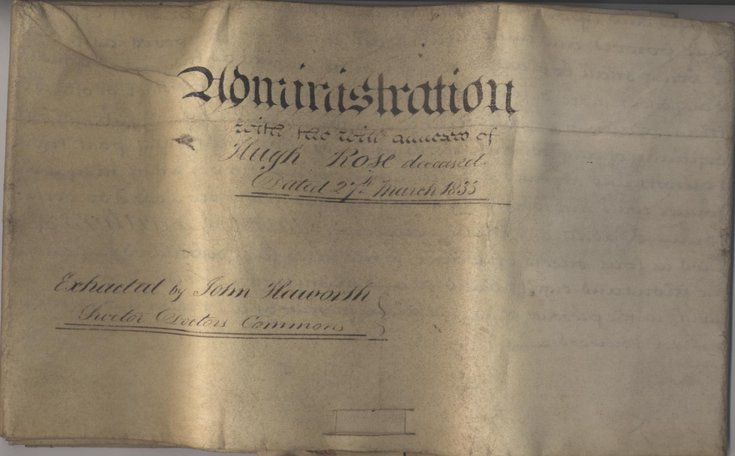 Administration
with the will annexed of
Hugh Rose deceased
Dated 27th March 1835
Extracted by John Haworth
Proctor Doctors Commons